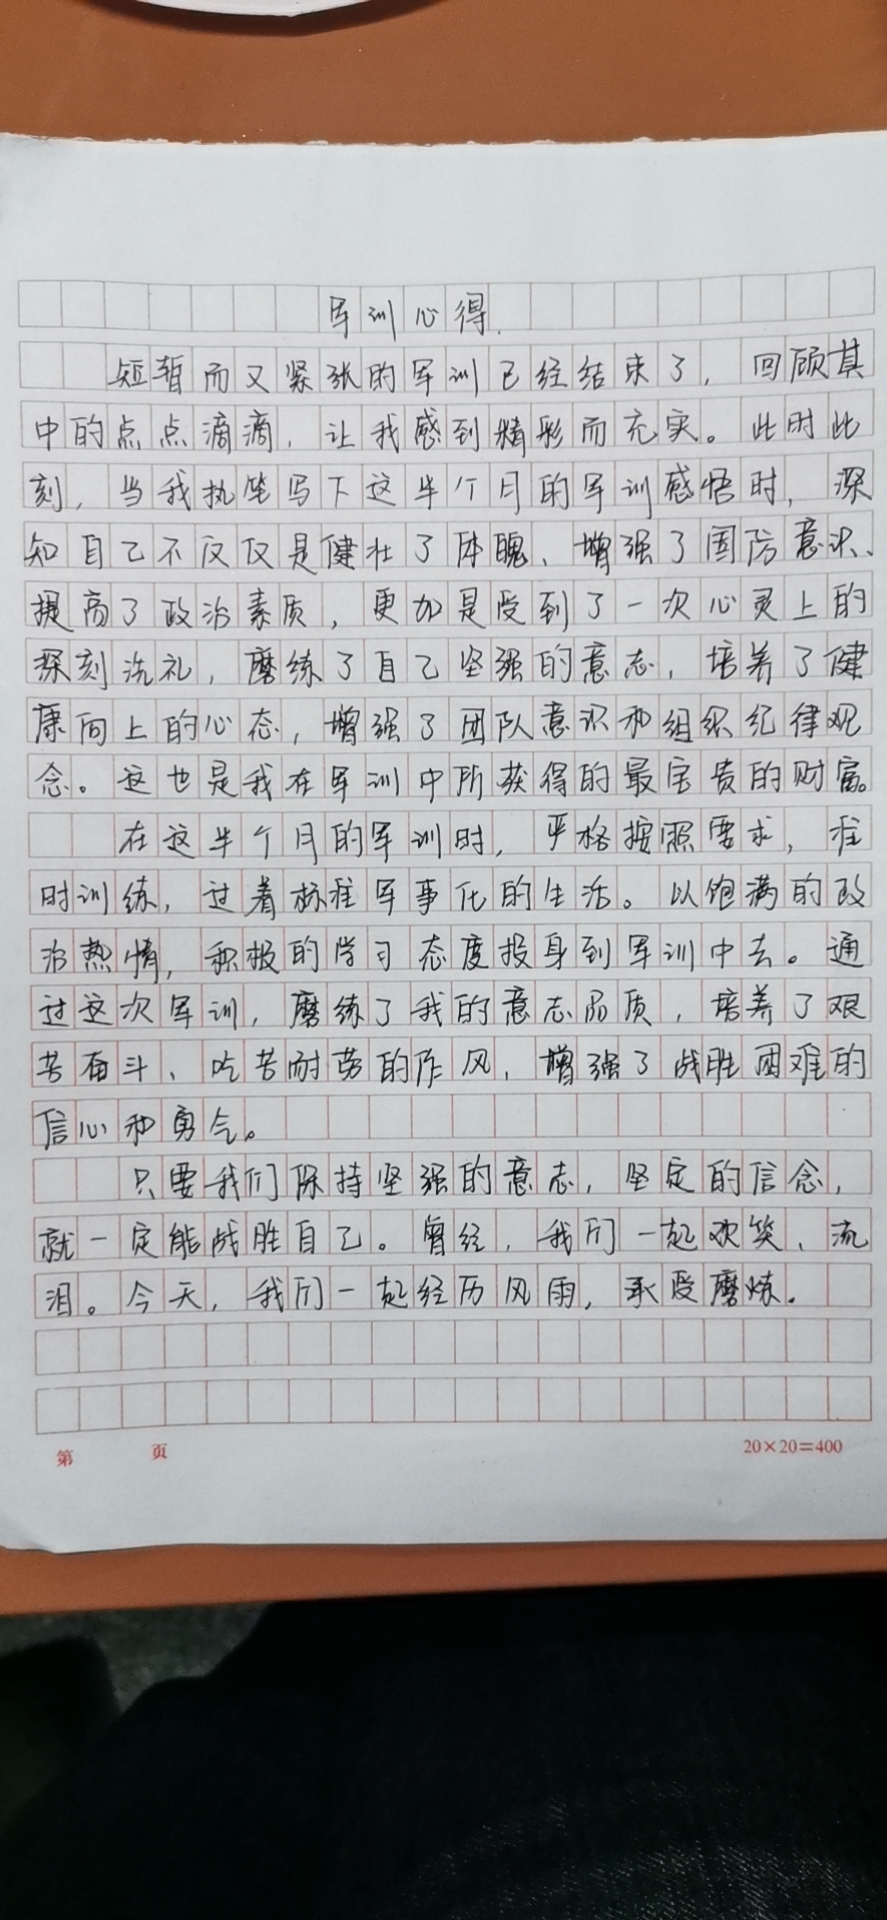 军训心得.
短暂而又紧张的军训已经结束了，回顾其
中的点点滴滴，让我感到精彩而充实。此时此
刻，当我执笔写下这半个月的军训感悟时，深
知自己不仅仅是健壮了体魄、增强了国防意识、
提高了政治素质，更加是受到了一次心灵上的
深刻洗礼，磨练了自己坚强的意志，培养了健
康向上的心态，增强了团队意识和组织纪律观
念。这也是我在军训中所获得的最宝贵的财富。
在这半个月的军训时，严格按照要求，准
时训练，过着标准军事化的生活。以饱满的政
治热情，积极的学习态度投身到军训中去。通
过这次军训，磨练了我的意志品质，培养了艰
苦奋斗、吃苦耐劳的作风，增强了战胜困难的
信心和勇气。
只要我们保持坚强的意志，坚定的信念，
就一定能战胜自己。曾经，我们一起欢笑、流
泪。今天，我们一起经历风雨，承受磨炼.
第 页
20×20=400